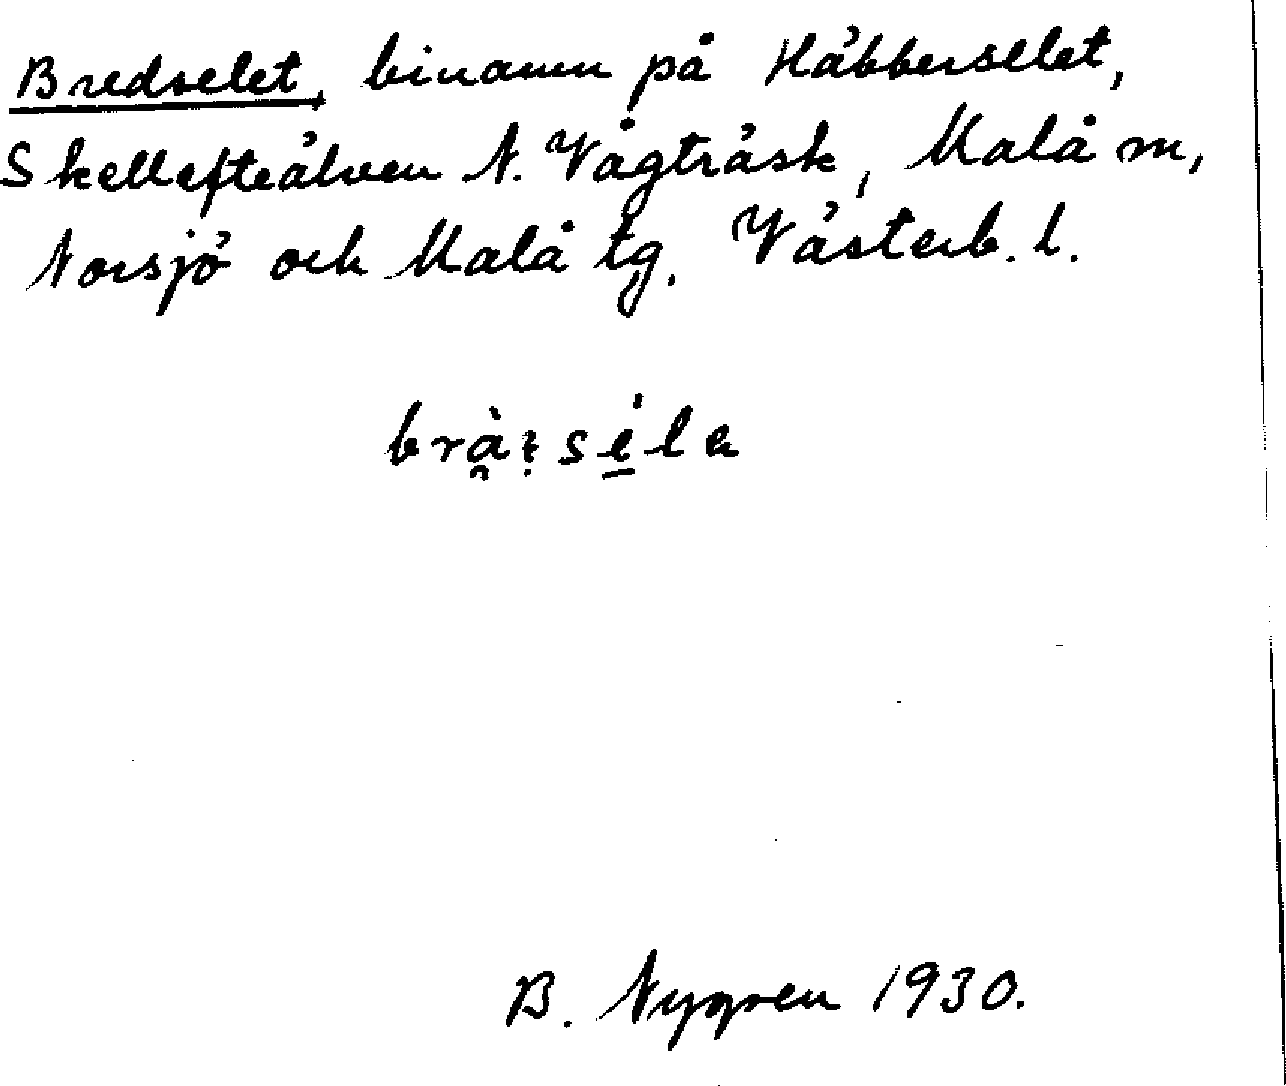 Bredselet, binamn på Häbberselet,
Skellefteälven N. Vägträsk, Malå m,
Norsjö och Malå tg. Västerb. l.
B. Nygren 1930.